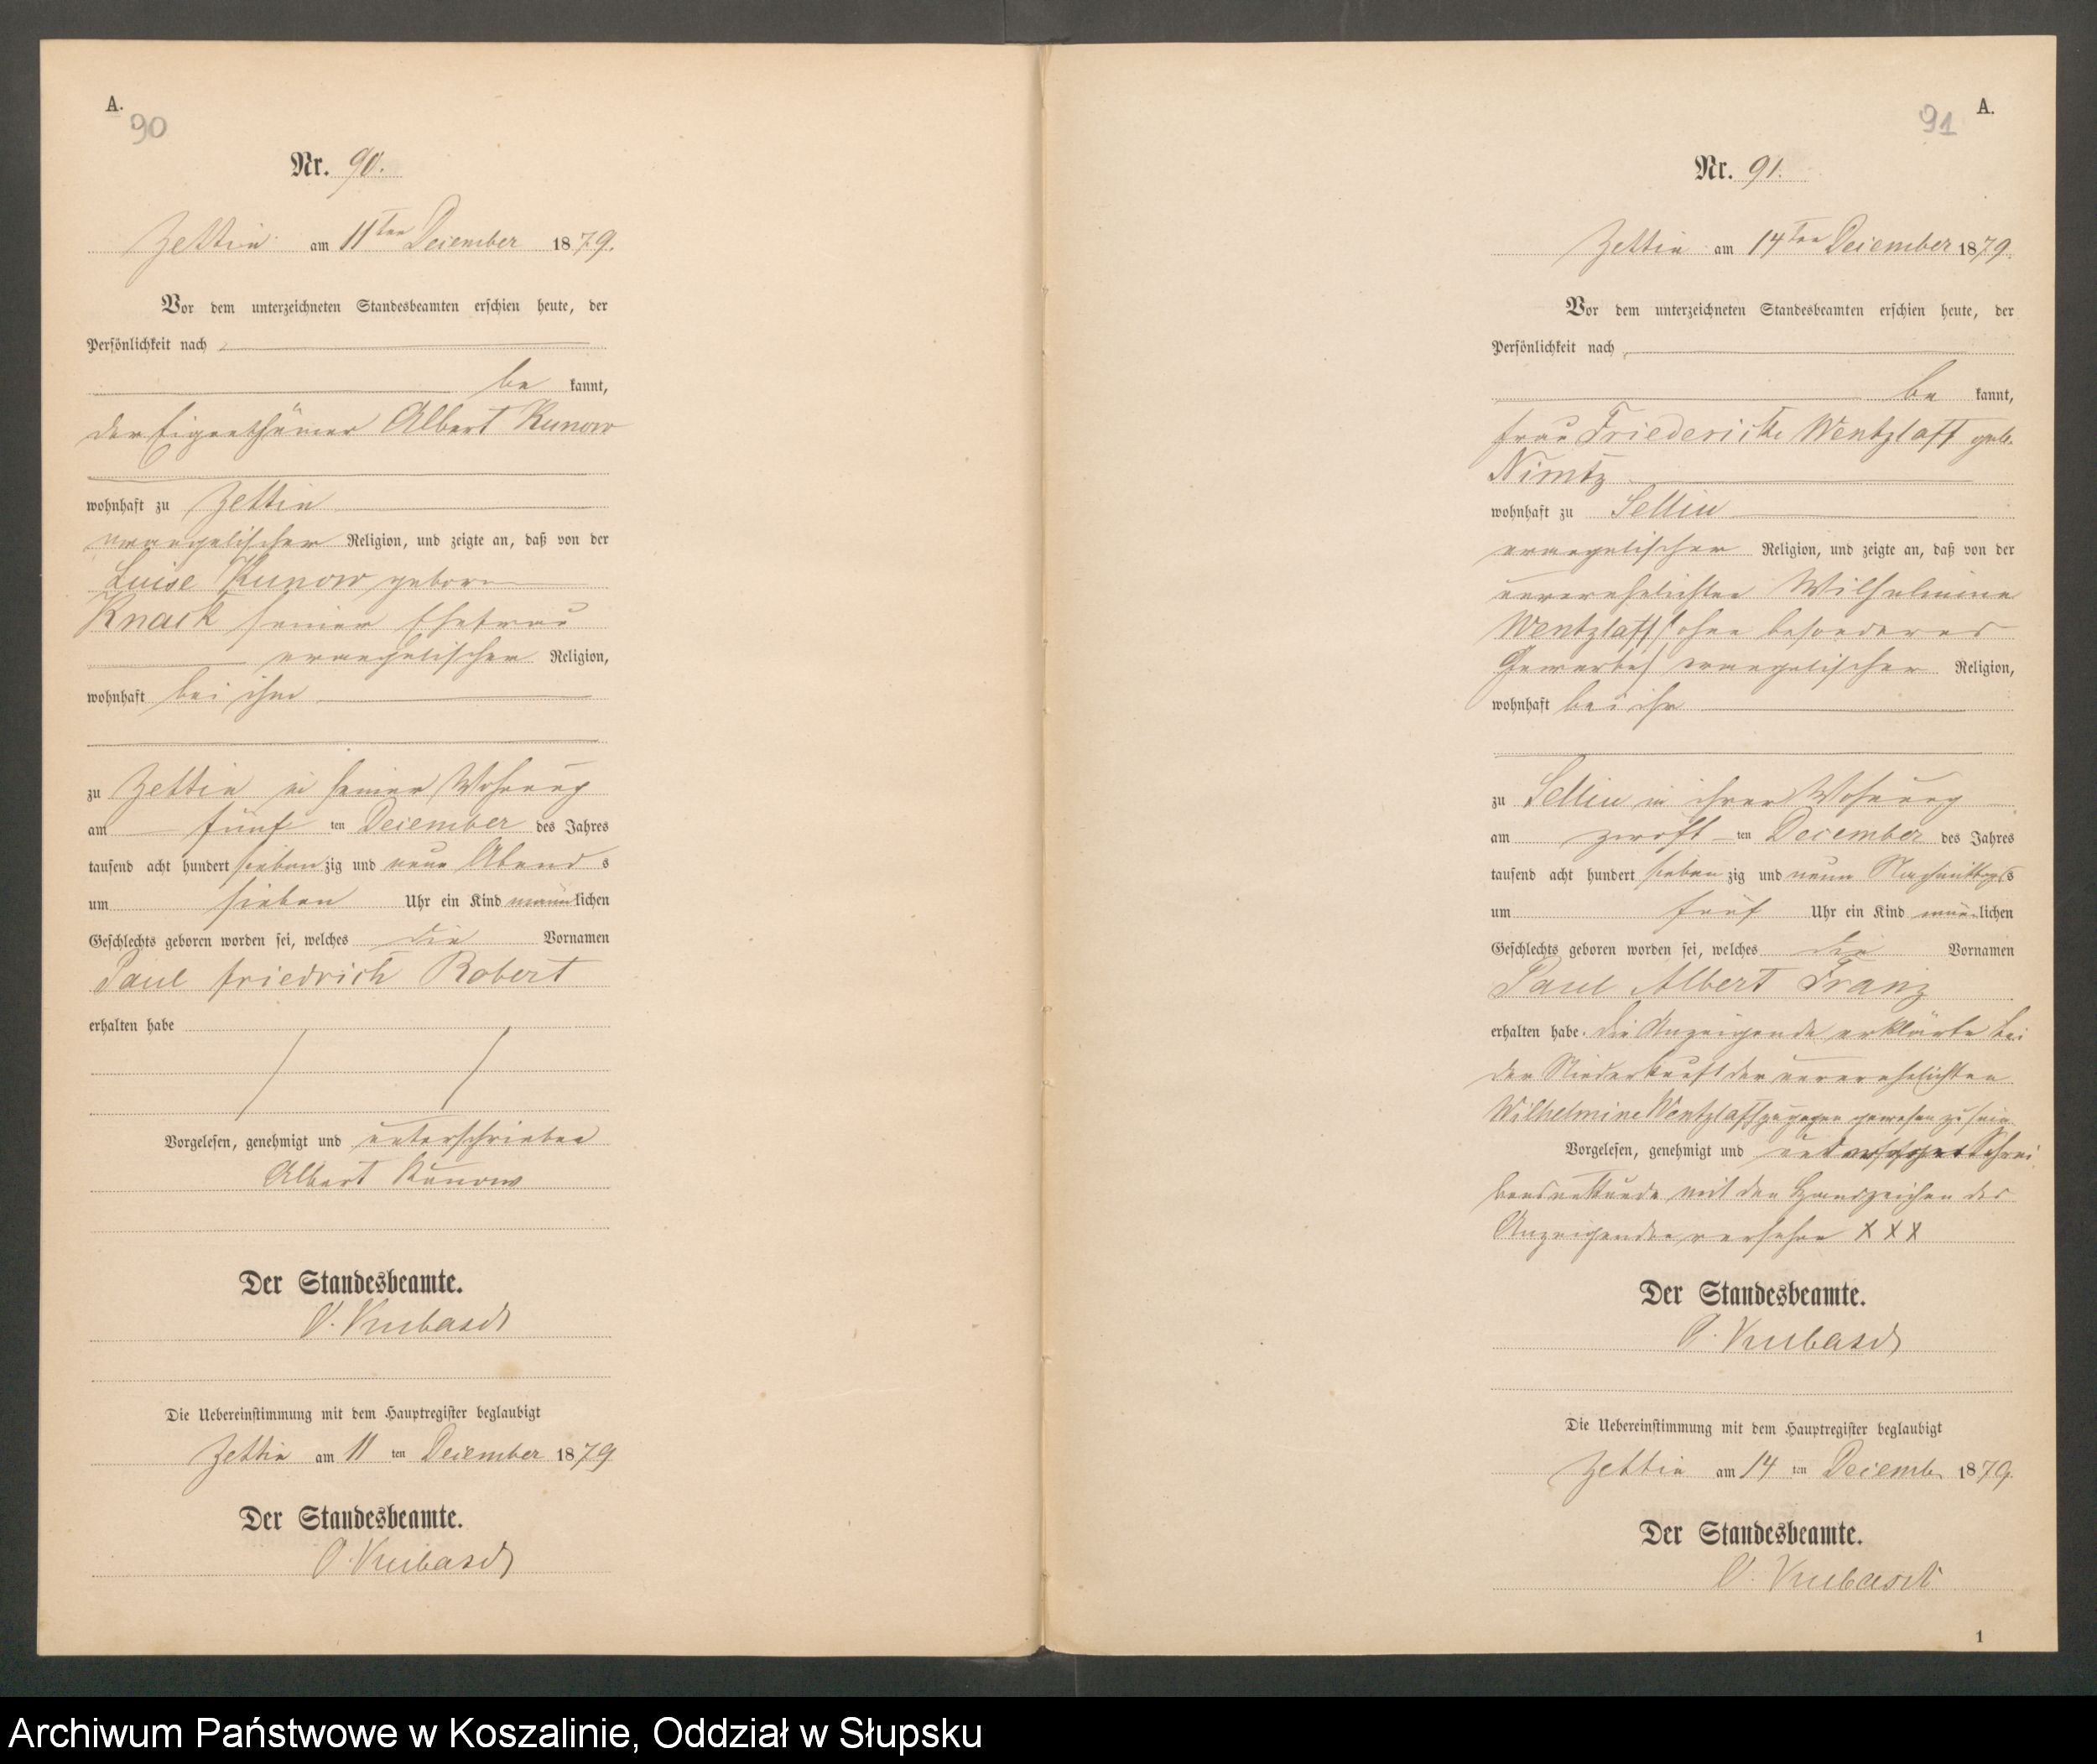 A.
90
Nr. 90.
Zettin am 11ten December 1879.
Vor dem unterzeichneten Standesbeamten erschien heute, der
Persönlichkeit nach
be kannt,
der Eigenthümer Albert Kunow
wohnhaft zu Zettin
evangelischer Religion, und zeigte an, daß von der
Luise Kunow geborne
Knack seiner Ehefrau
evangelischer Religion,
wohnhaft bei ihm
zu Zettin in seiner Wohnung
am fünf ten December des Jahres
tausend acht hundert siebenzig und neun Abend s
um sieben Uhr ein Kind männlichen
Geschlechts geboren worden sei, welches die Vornamen
Paul Friedrich Robert
erhalten habe
Vorgelesen, genehmigt und unterschrieben
Albert Kunow
Der Standesbeamte.
O. Kubasch
Die Uebereinstimmung mit dem Hauptregister beglaubigt
Zettin am 11 ten December 1879
Der Standesbeamte.
O. Kubasch
91
A.
Nr. 91.
Zettin am 14ten December 1879.
Vor dem unterzeichneten Standesbeamten erschien heute, der
Persönlichkeit nach
be kannt,
Frau Friedericke Wentzlaff geb.
Nimtz
wohnhaft zu Sellin
evangelischer Religion, und zeigte an, daß von der
unverehelichten Wilhelmine
Wentzlaff (ohne besonderes
Gewerbe) evangelischer Religion,
wohnhaft bei ihr
zu Sellin in ihrer Wohnung
am zwölf ten December des Jahres
tausend acht hundert sieben zig und neun Nachmittags
um fünf Uhr ein Kind männlichen
Geschlechts geboren worden sei, welches die Vornamen
Paul Albert Franz
erhalten habe. Die Anzeigende erklärte bei
der Niederkunft der unverehelichten
Wilhelmine Wentzlaff zugegen gewesen zu sein
Vorgelesen, genehmigt und Schrei
bensunkunde mit den Handzeichen der
Anzeigenden versehen XXX
Der Standesbeamte.
O. Kubasch
Die Uebereinstimmung mit dem Hauptregister beglaubigt
Zettin am 14 ten Decemb. 1879.
Der Standesbeamte.
O. Kubasch
1
Archiwum Państwowe w Koszalinie, Oddział w Słupsku